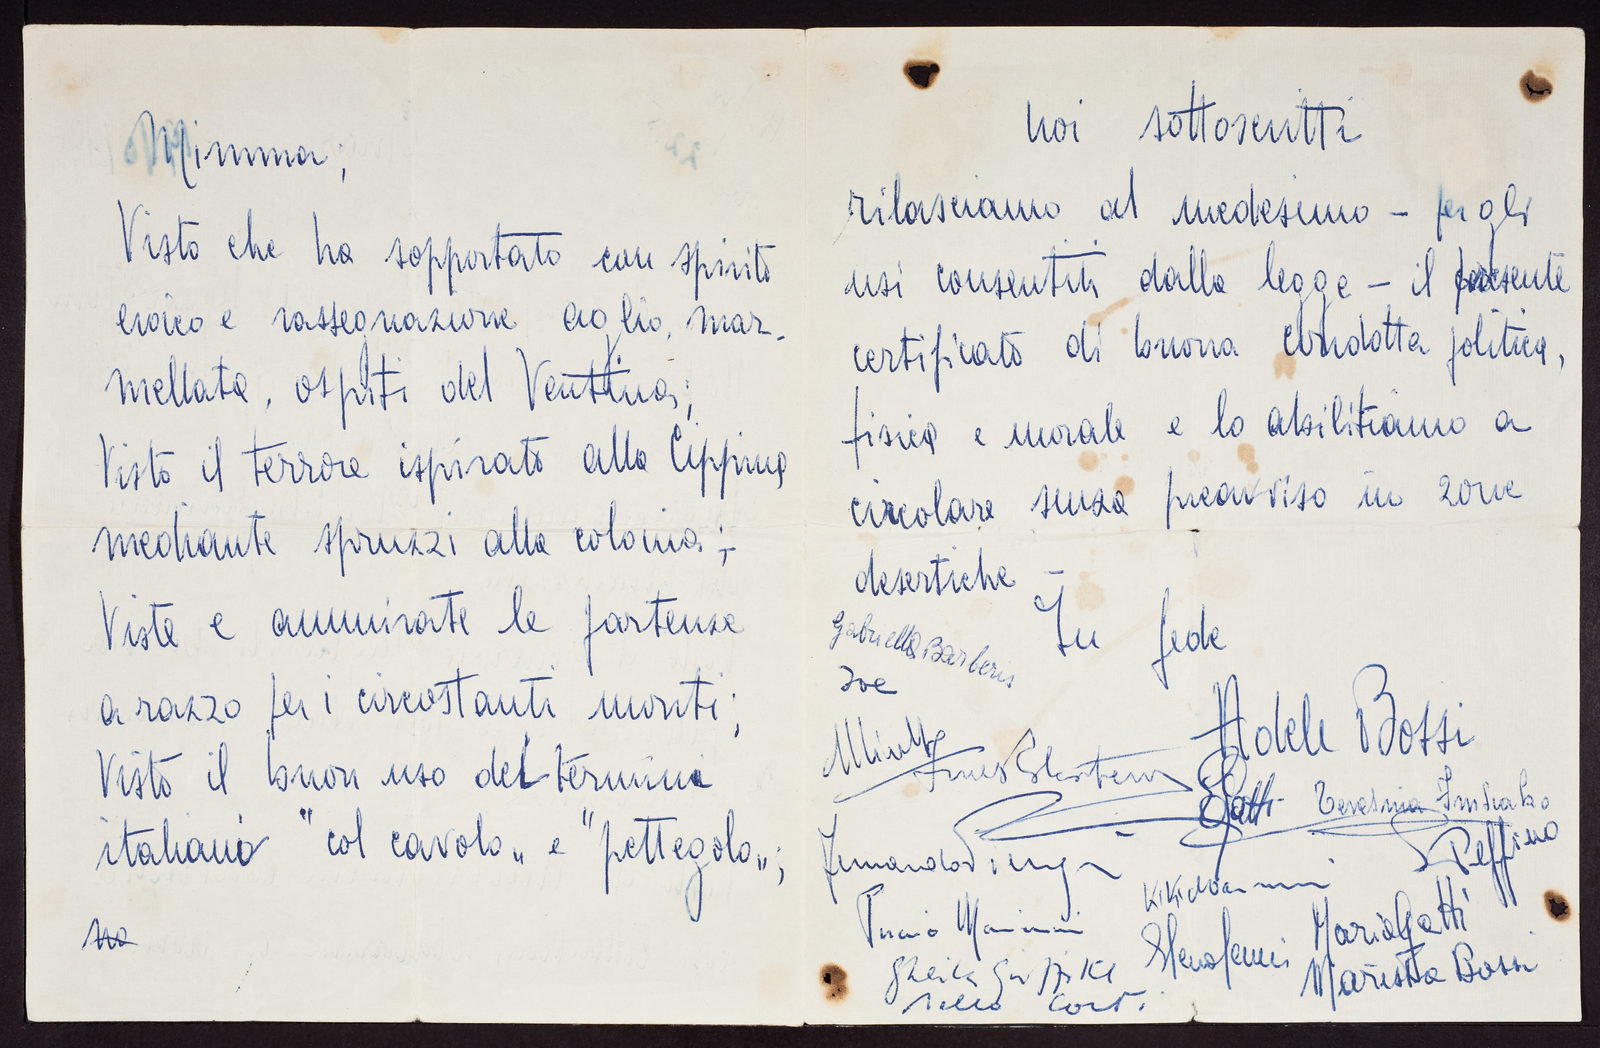 Mimma;
Visto che ha sopportato con spirito
eroico e rassegnazione aglio, mar-
mellata, ospiti del Ventina;
Visto il terrore ispirato alla Cippina
mediante spruzzi alla colonia;
Viste e ammirate le partenze
a razzo per i circostanti monti;
Visto il buon uso del termini
italiano "col cavolo„ e "pettegolo„;
no
noi sottoscritti
rilasciamo al medesimo - per gli
usi consentiti dalla legge - il presente
certificato di buona condotta politica,
fisica e morale e lo abilitiamo a
circolare senza preavviso in zone
desertiche -
In fede
Gabriella Barberis
Zoe
Adele Bossi
Gatti
Peppino
Maria Gatti
Marista Bossi
Conti